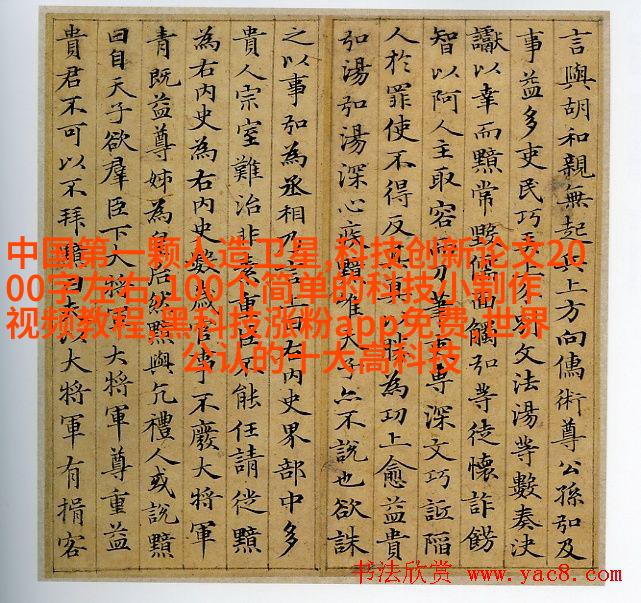 言與胡和親無起兵上方向儒術尊公孫弘及
事益多吏民巧弄上分別文法湯等數奏決
讞以幸而黯常毀儒面觸弘等徒懷詐飾
智以阿人主取容而刀筆吏專深文巧詆陷
人於罪使不得反其真以勝為功上愈益貴
弘湯弘湯深心疾黯唯天子亦不說也欲誅
之以事弘為丞相乃言上曰右內史界部中多
貴人宗室難治非素重臣不能任請徙黯
為右內史為右內史數歲官事不廢大將軍
青既益尊姊為皇后然黯與亢禮人或說黯
曰自天子欲羣臣下大將軍大將軍尊重益
貴君不可以不拜黯曰夫以大將軍有揖客
中国第一颗人造卫星,科技创新论文20
00字左右,100个简单的科技小制作
视频教程,黑科技涨粉app免费,世界
公认的十大高科技
书法欣赏 www.yac8.com